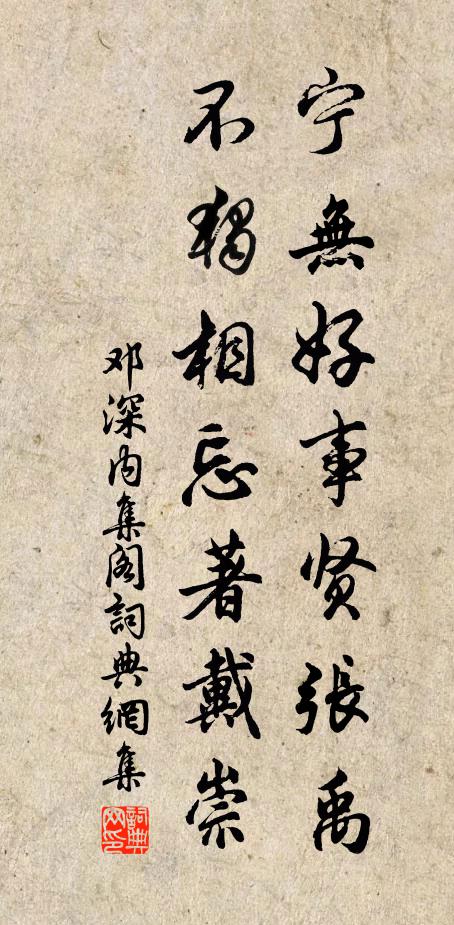 宁無好事贤張禹
不獨相忘著戴崇
邓深内集阁詞典網集
詞典网印